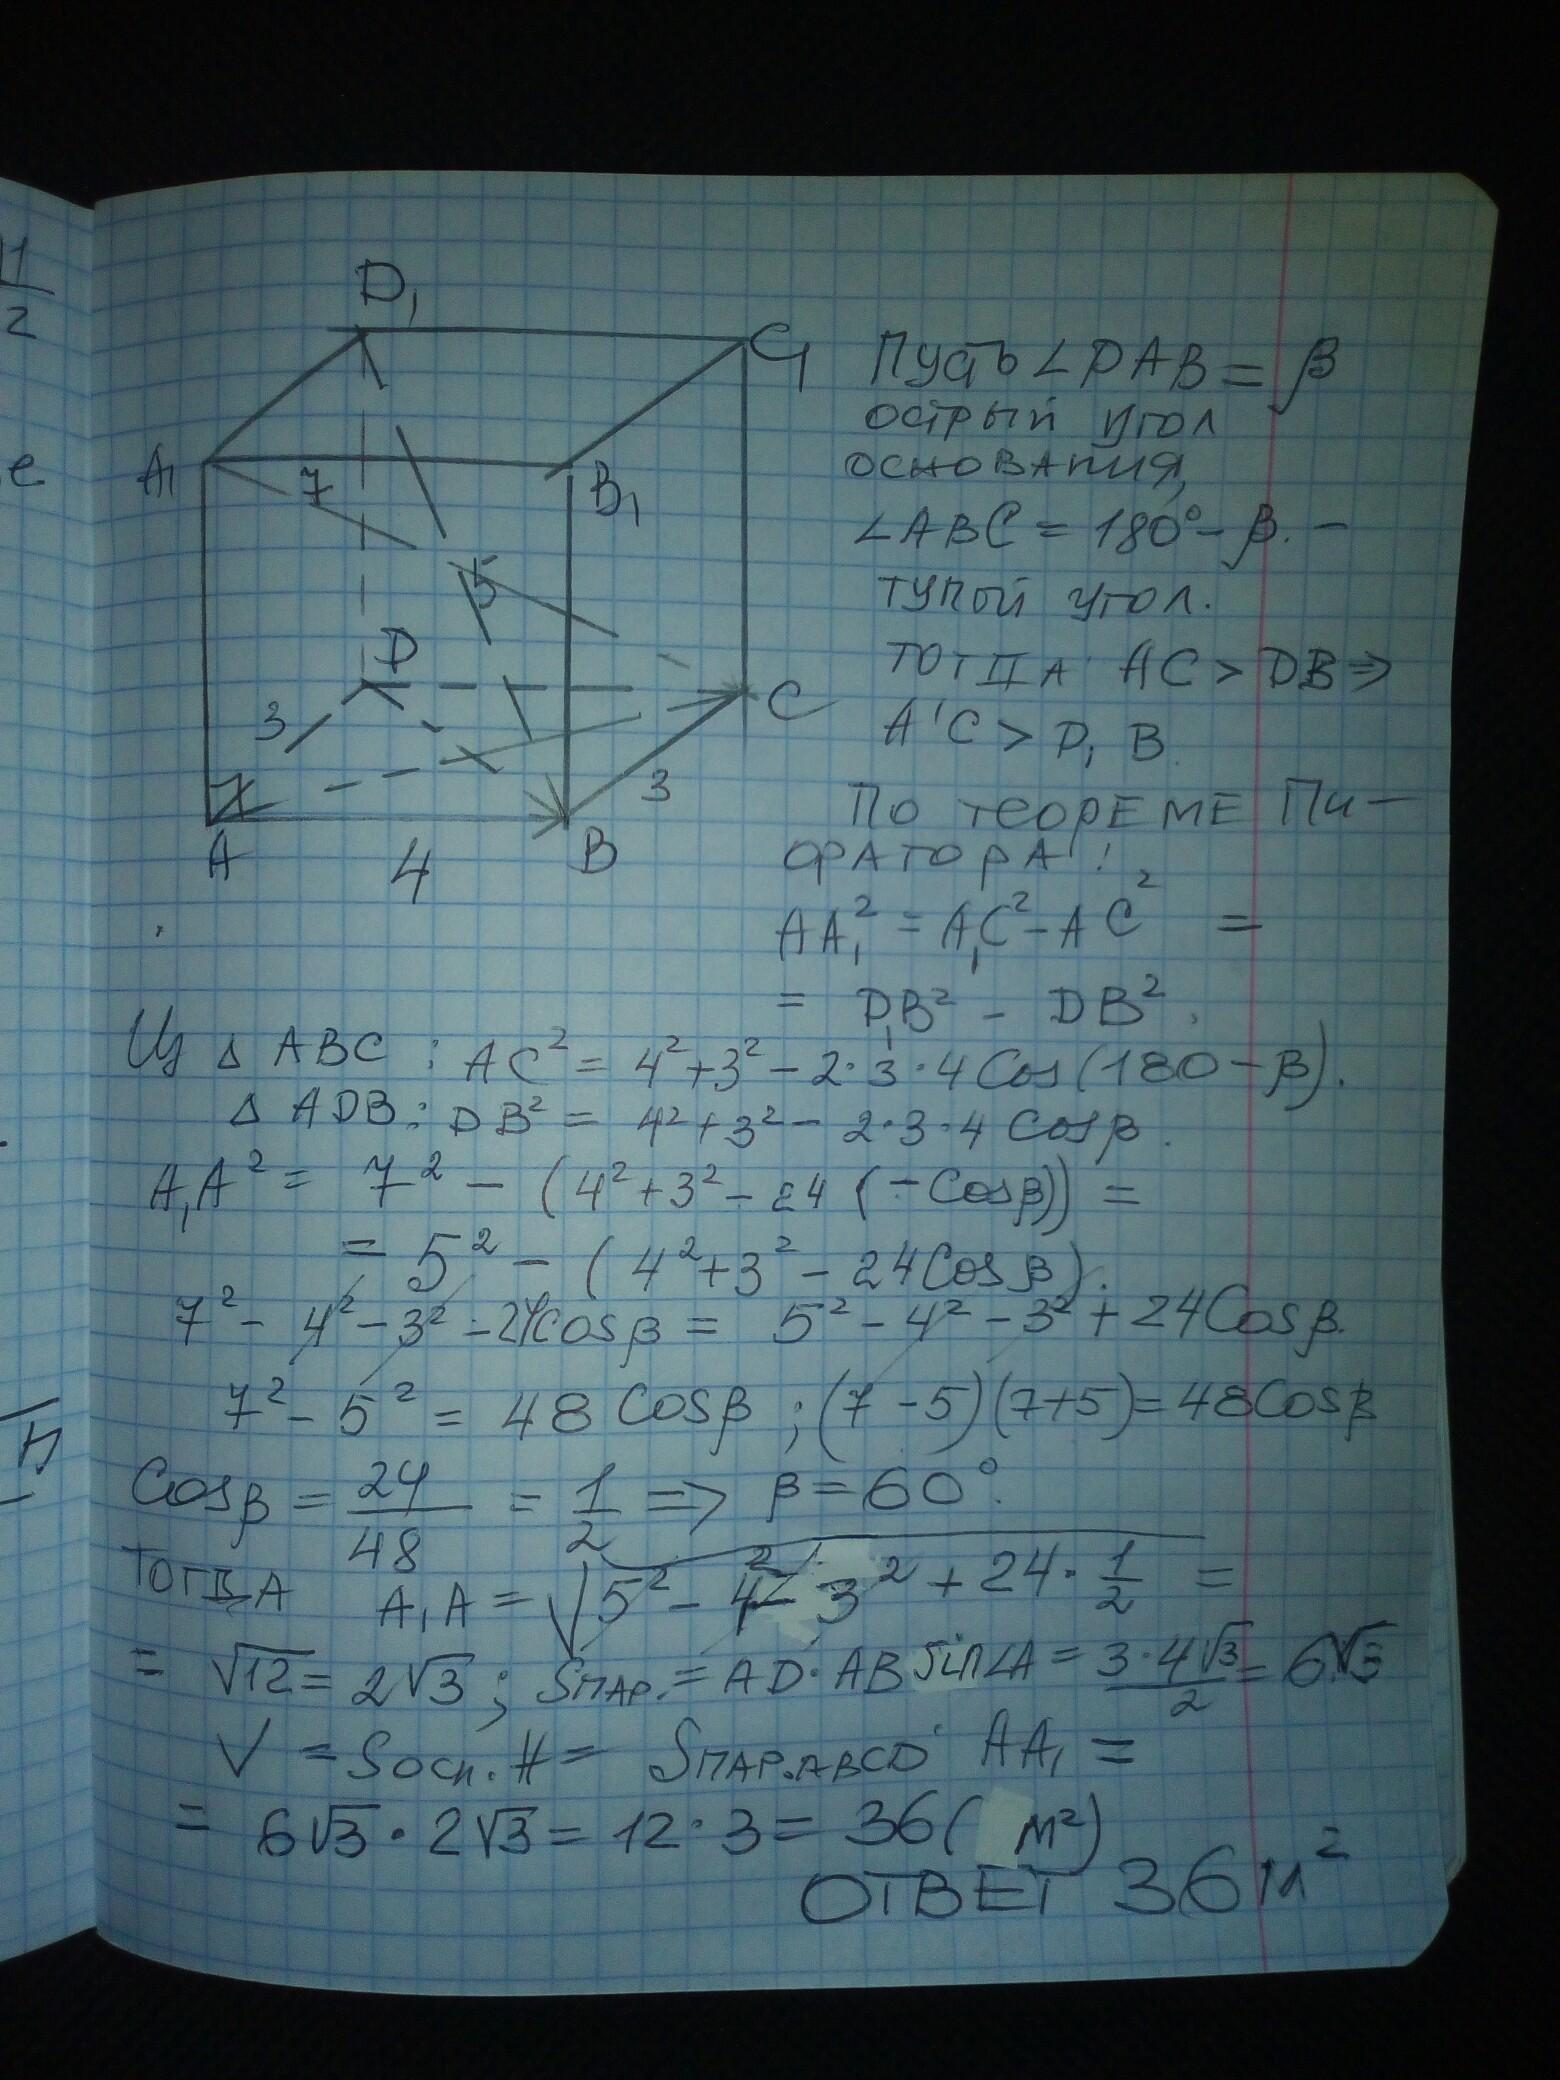 1/2
e
D₁
C₁
A₁
7
B₁
5
D
3
C
3
A
4
B
Пусть ∠DAB = β
острый угол
основания,
∠ABC = 180° - β. -
тупой угол.
тогда AC > DB ⇒
A'C > D₁B
По теореме Пи-
фагора:
AA₁² = A₁C² - AC² =
= D₁B² - DB².
Из Δ ABC : AC² = 4² + 3² - 2·3·4 Cos(180 - β).
Δ ADB : DB² = 4² + 3² - 2·3·4 Cosβ.
A₁A² = 7² - (4² + 3² - 24 (-Cosβ)) =
= 5² - (4² + 3² - 24Cosβ).
7² - 4² - 3² - 24Cosβ = 5² - 4² - 3² + 24Cosβ.
7² - 5² = 48 Cosβ ; (7 - 5)(7 + 5) = 48Cosβ
Cosβ = 24/48 = 1/2 => β = 60°.
тогда A₁A = √(5² - 4² - 3² + 24 · 1/2) =
= √12 = 2√3 ; Sпар. = AD · AB sin∠A = 3·4√3/2 = 6√3
V = Sосн. H = Sпар.ABCD · AA₁ =
= 6√3 · 2√3 = 12 · 3 = 36 (м²)
ОТВЕТ 36м²